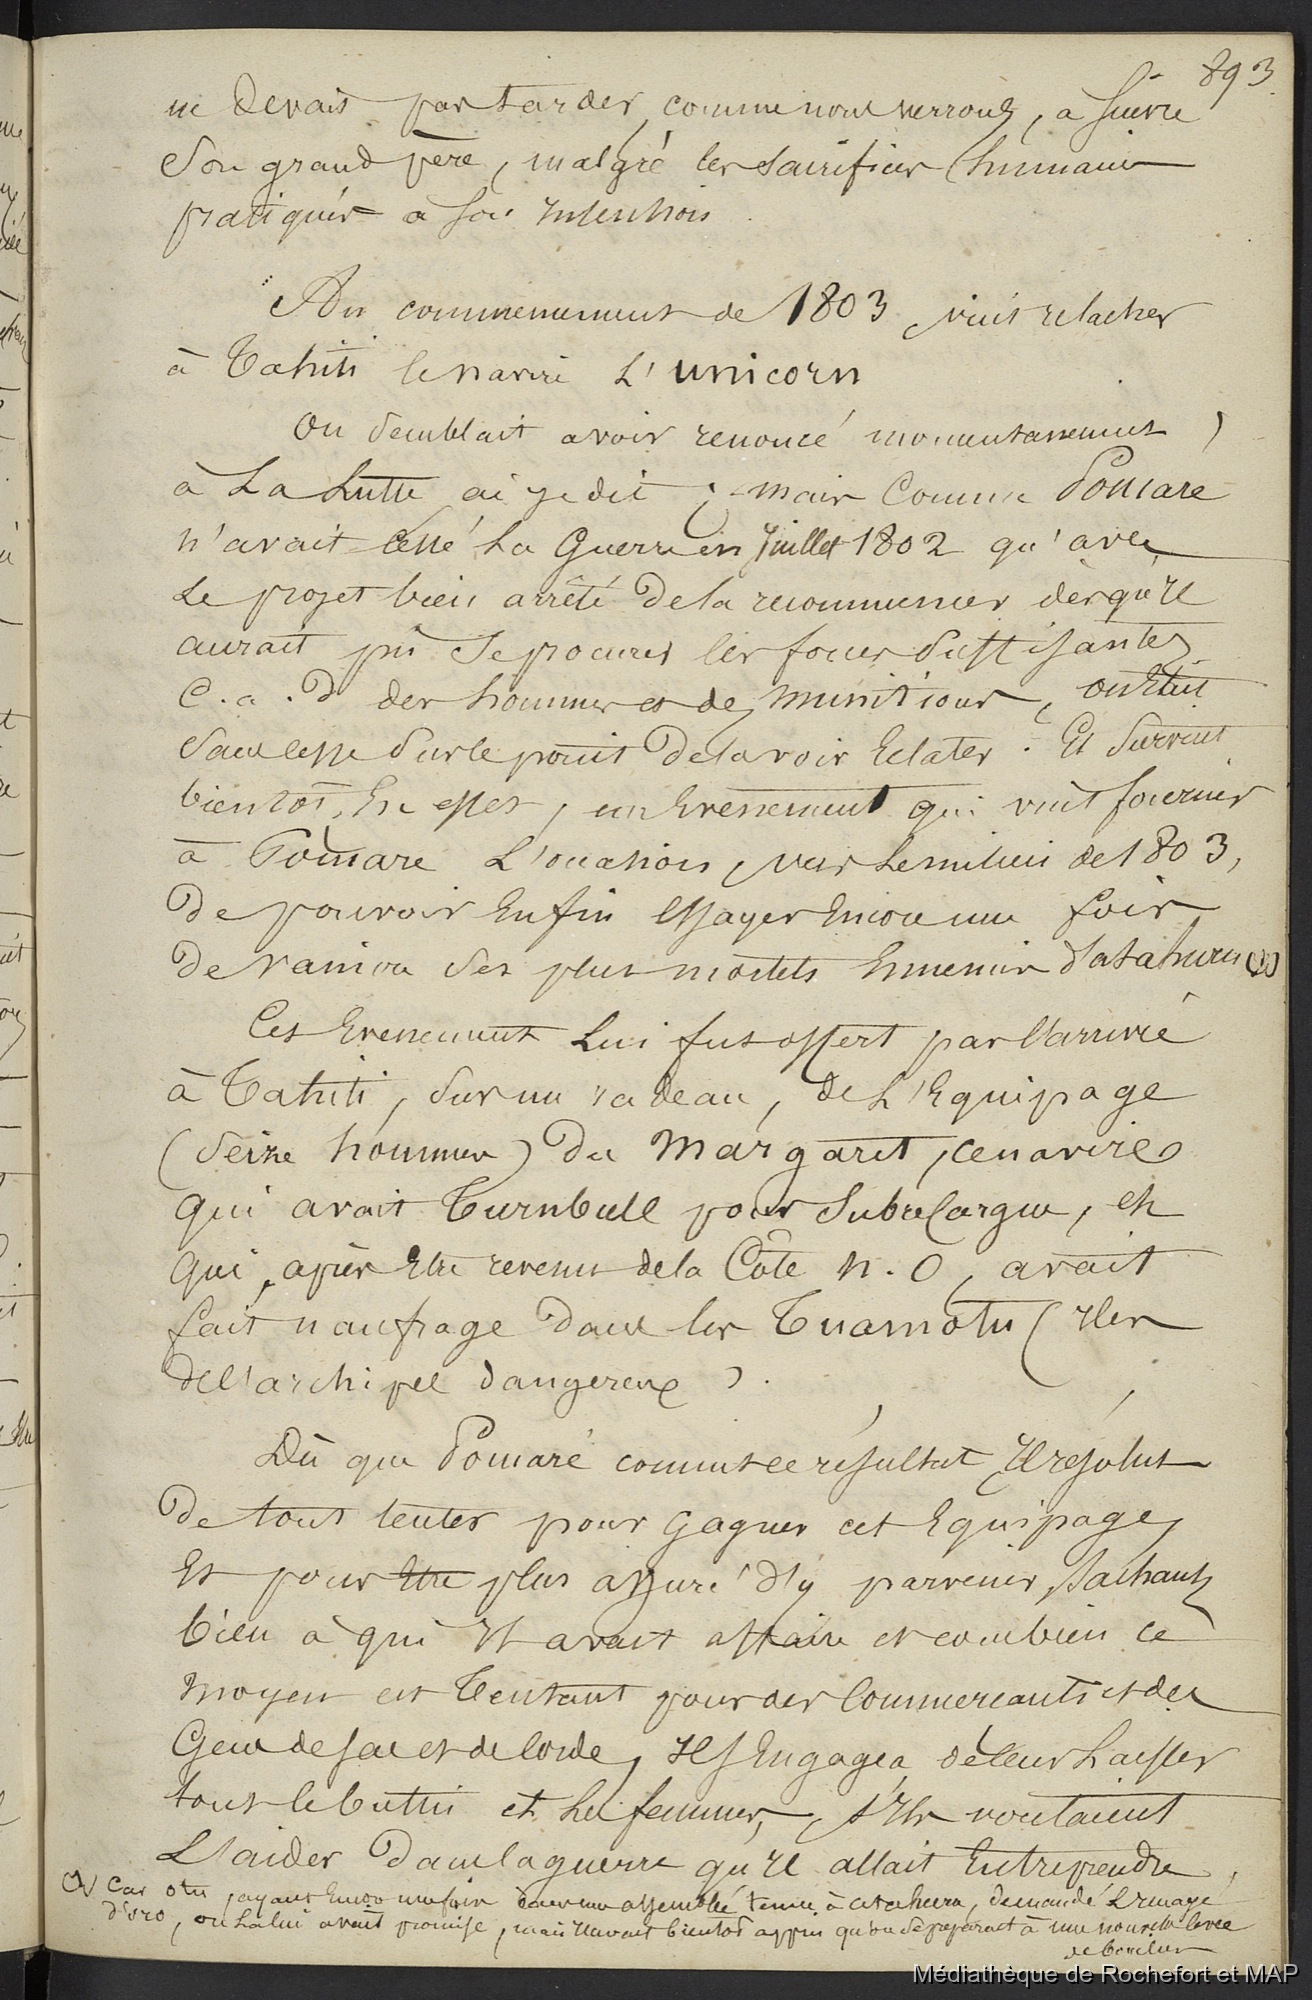 893.
ne devait pas tarder, comme nous verrons, à suivre
son grand père, malgré les sacrifices humains
pratiqués à son intention.
Au commencement de 1803 vint relacher
à Tahiti le navire L'unicorn
On semblait avoir renoncé momentanement
à La Lutte ai je dit ; mais Comme Pomaré
n'avait cessé La Guerre en Juillet 1802 qu'avec
Le projet bien arrêté de la recommencer dès qu'il
aurait pu se procurer les forces suffisantes
C. a. D des hommes et des munitions, on était
sans cesse sur le point de la voir Eclater. Et survint
bientôt, En effet, un Evenement qui vint fournir
à Pomare L'occasion, vers Le milieu de 1803,
De pouvoir Enfin Essayer Encore une fois
De vaincre ses plus mortels Ennemis d'atahuru (1)
Cet Evenement Lui fut offert par l'arrivée
à Tahiti, sur un radeau, de L'Equipage
(seize hommes) Du Margaret, ce navire
qui avait Turnbull pour Subrecargue, et
qui, après Etre revenu de la Côte N.O, avait
fait naufrage Dans les Tuamotu (Iles
de l'archipel dangereux).
Dès que Pomaré connut ce résultat Il résolut
De tout tenter pour gagner cet Equipage,
Et pour Etre plus assuré d'y parvenir, sachant
bien à qui Il avait affaire et combien ce
moyen est Tentant pour des Commercants et des
Gens de sac et de corde, Il s'Engagea de leur Laisser
tout le buttin et Les femmes, s'Ils voulaient
L'aider Dans la guerre qu'Il allait Entreprendre,
(1) Car otu, ayant Encore une fois dans une assemblée tenue à atahuru, demandé L'Image
d'oro, on La lui avait promise, mais Il avait bientôt appris qu'on se préparait à une nouvelle levée
de boucliers
Médiathèque de Rochefort et MAP